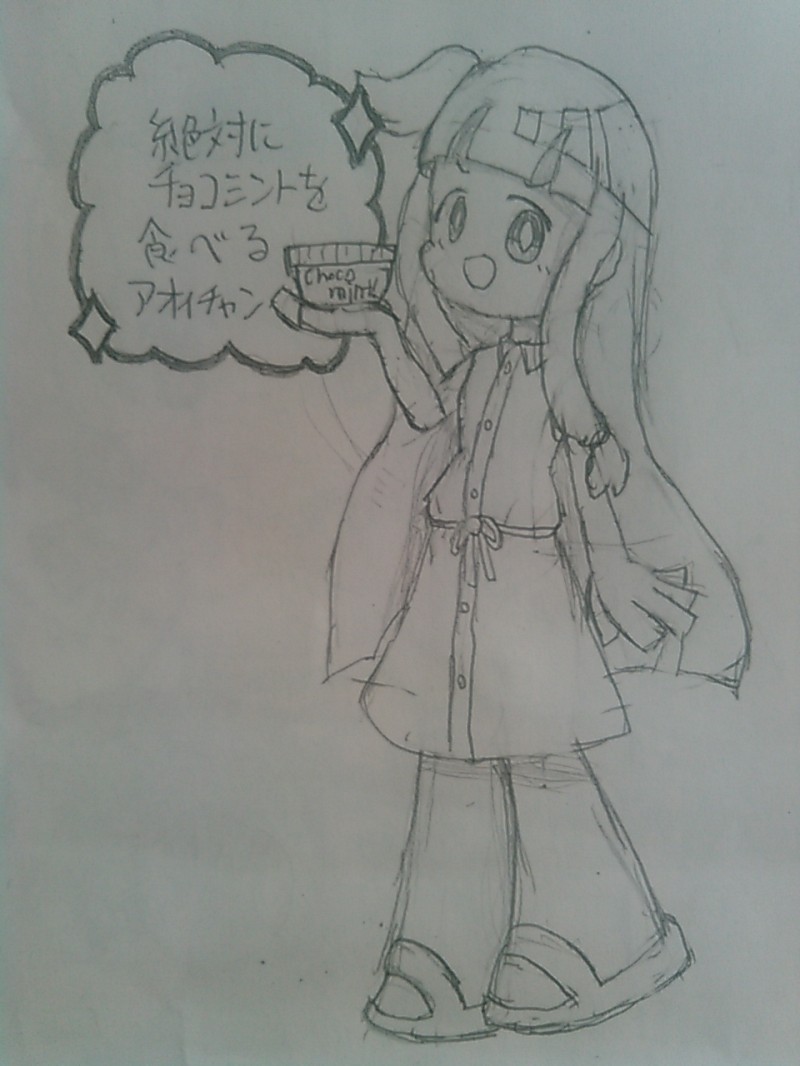 絶対に
チョコミントを
食べる
アオイチャン
Choco
mint